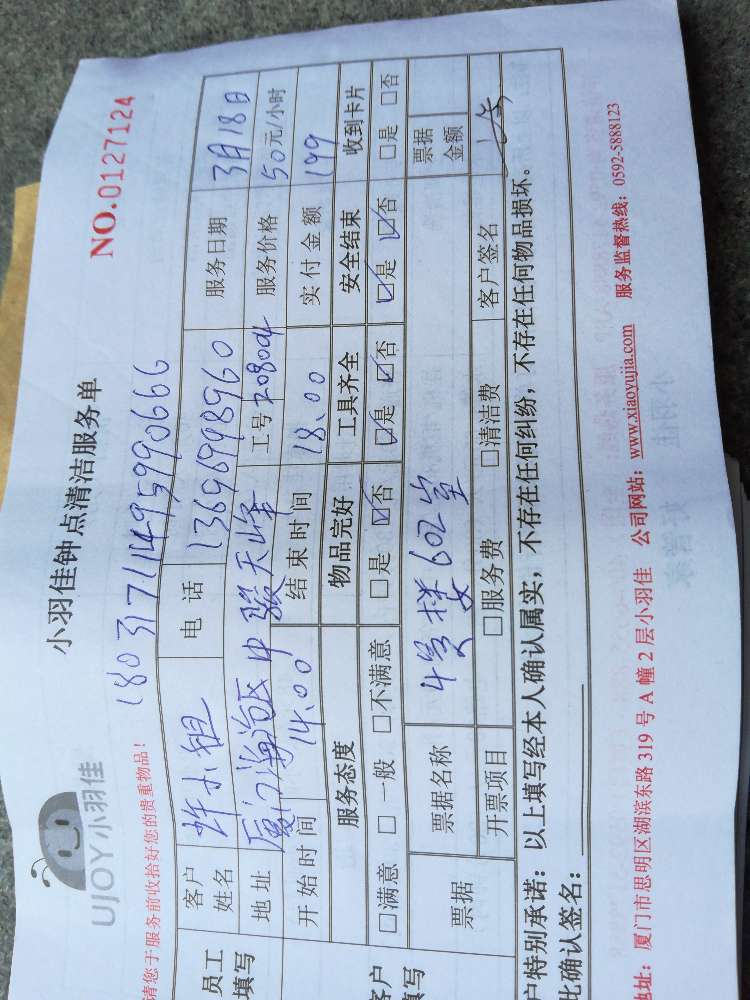 UJOY小羽佳
小羽佳钟点清洁服务单
NO.0127124
请您于服务前收拾好您的贵重物品！
180317114959990666
员工
填写
客户
姓名
许小姐
电话
13696998960
服务日期
3月18日
地址
厦门海沧区中骏天峰
工号 208004
服务价格
50元/小时
开始时间
14.00
结束时间
18.00
实付金额
199
服务态度
物品完好
工具齐全
安全结束
收到卡片
客户
填写
□满意 □一般 □不满意
□是 □否
□是 □否
□是 □否
□是 □否
票据
票据名称
4号楼602室
票据
金额
开票项目
□服务费 □清洁费
客户签名
户特别承诺：以上填写经本人确认属实，不存在任何纠纷，不存在任何物品损坏。
此确认签名：
地址：厦门市思明区湖滨东路319号A幢2层小羽佳 公司网站：www.xiaoyujia.com 服务监督热线：0592-5888123